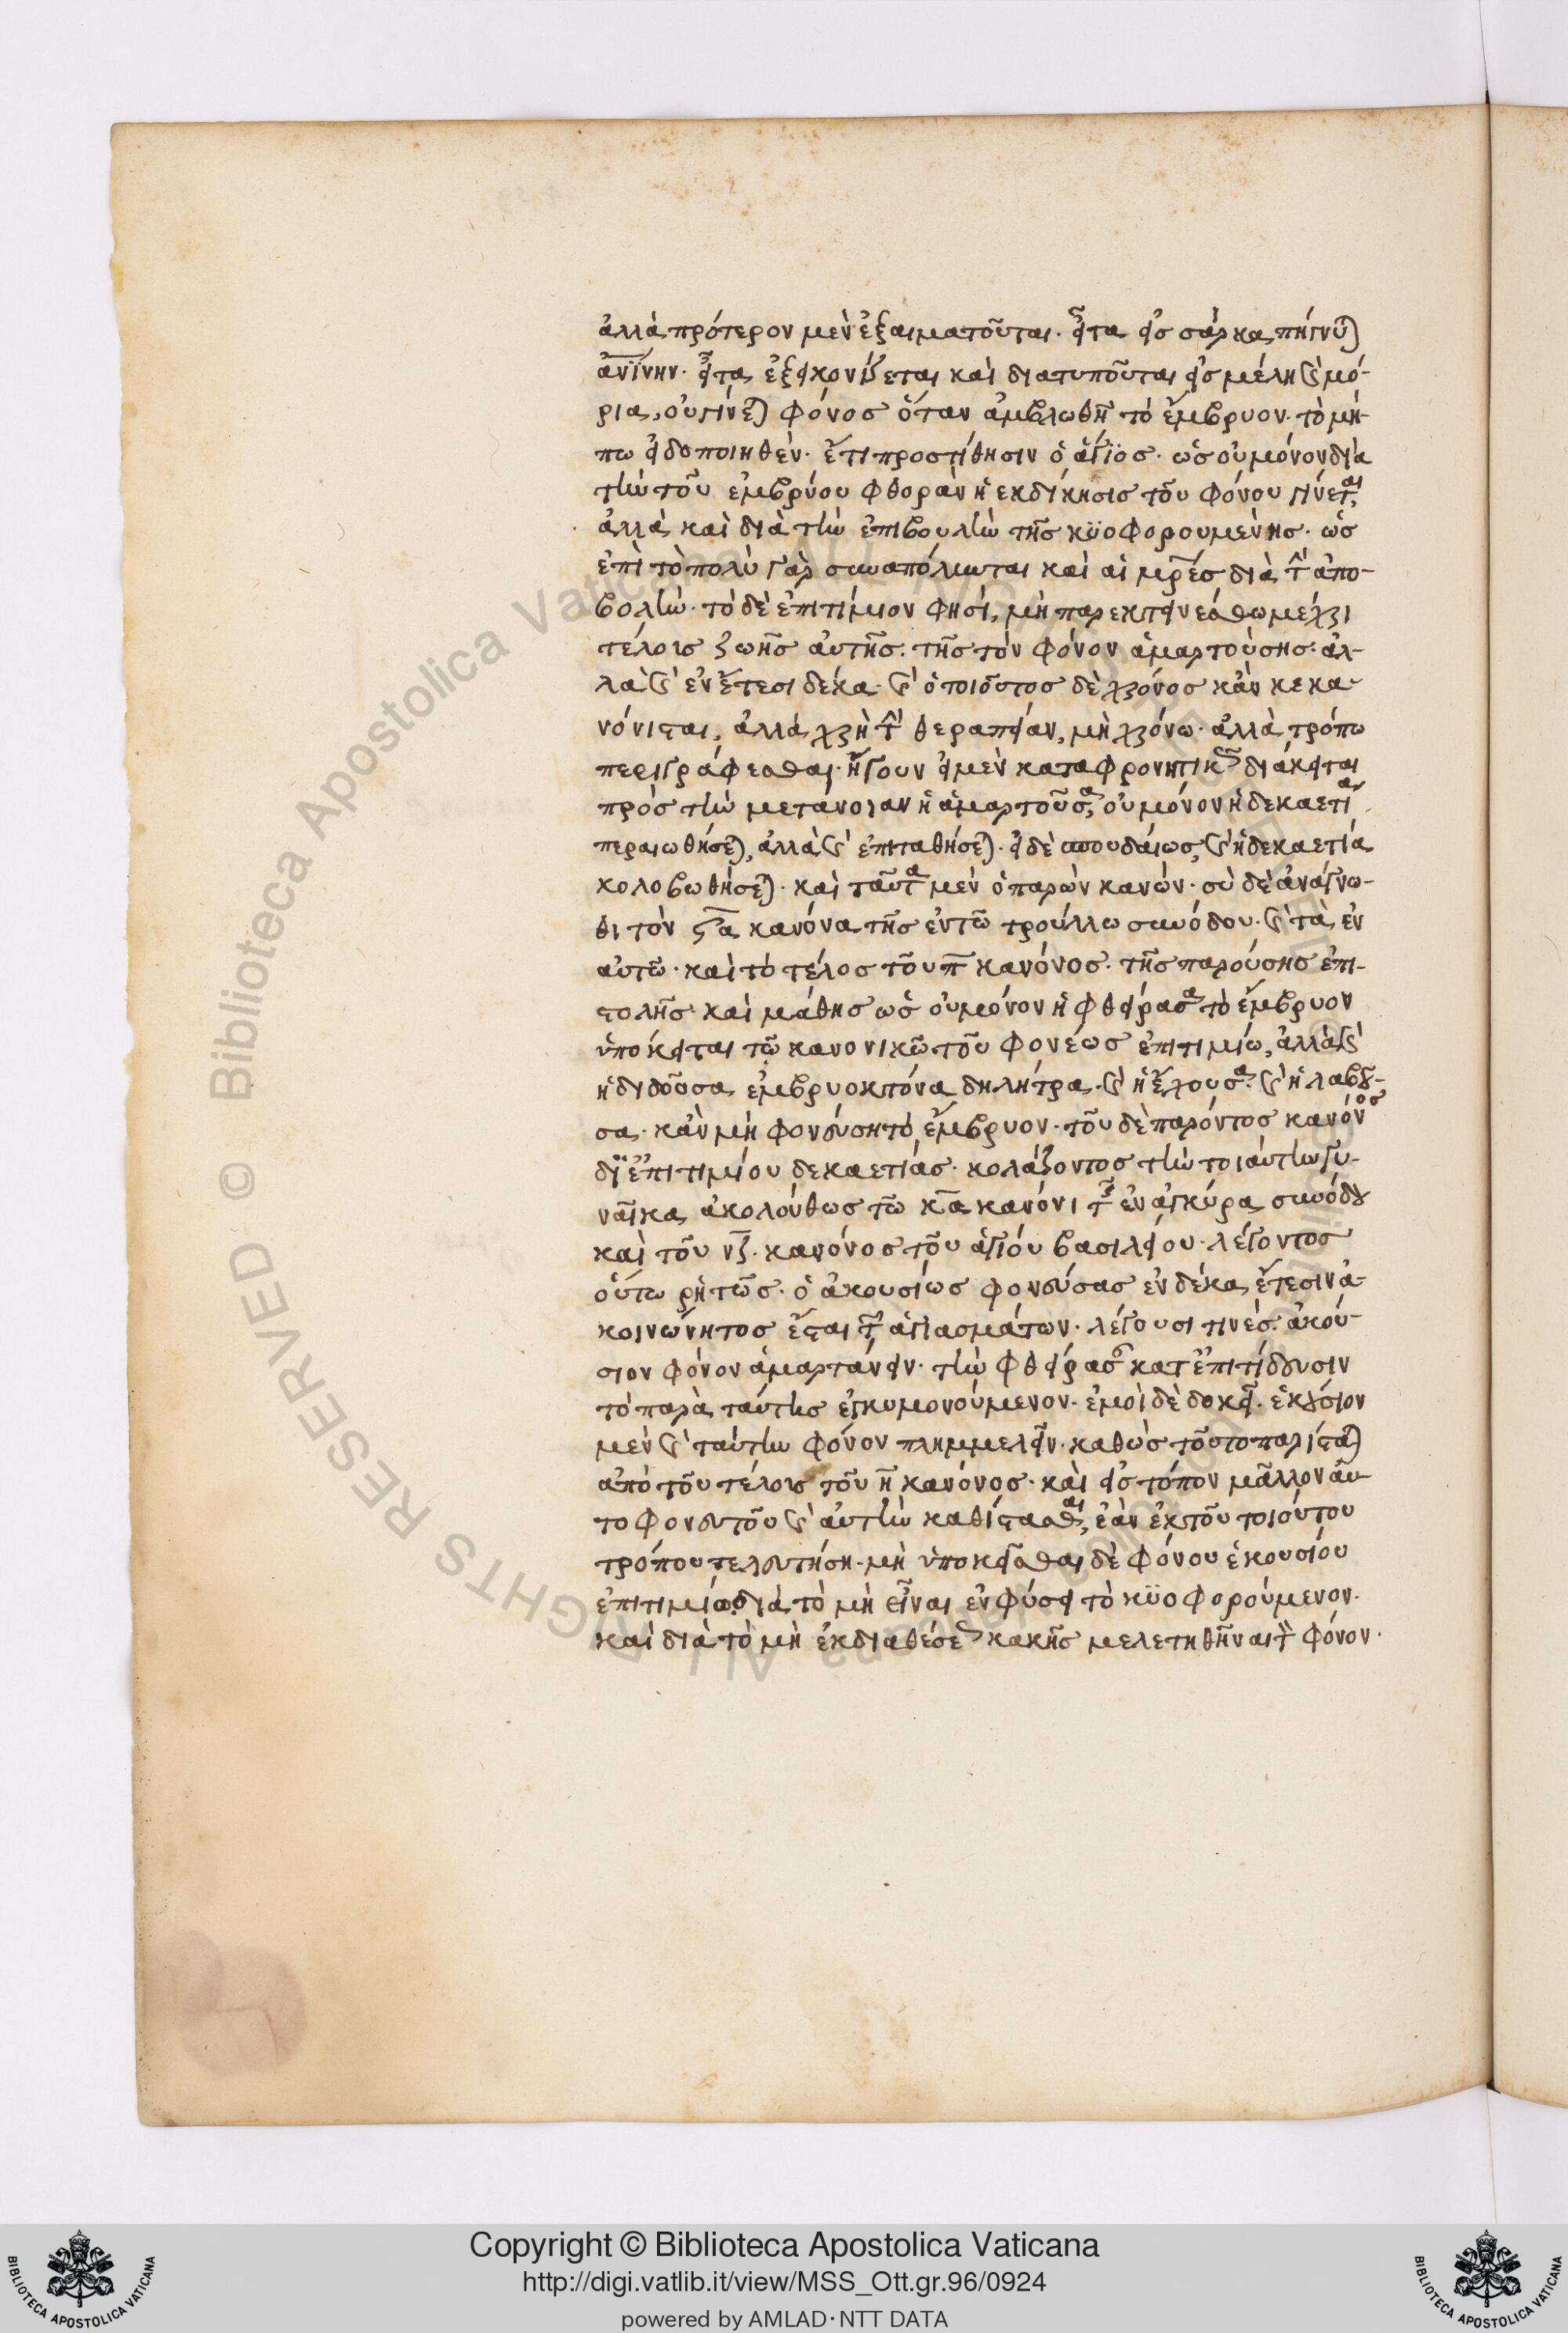 ἀλλὰ πρότερον μὲν ἐξαιματοῦται· εἶτα εἰς σάρκα πήγνυται
ἀνίνην· εἶτα ἐξεικονίζεται καὶ διατυποῦται εἰς μέλη καὶ μό-
ρια, οὐ γίνεται φόνος ὅταν ἀμβλωθῆ τὸ ἔμβρυον· τὸ μή-
πω εἰδοποιηθέν· ἔτι προστίθησιν ὁ ἅγϊος· ὡς οὐ μόνον διὰ
τὴν τοῦ ἐμβρύου φθορὰν ἡ εκδίκησις τοῦ φόνου γίνεται,
ἀλλὰ καὶ διὰ τὴν ἐπιβουλὴν τῆς κϋοφορουμένης· ὡς
ἐπὶ τὸ πολὺ γὰρ συναπόλλυνται καὶ αἱ μρες διὰ τὴν ἀπο-
βολήν· τὸ δὲ ἐπιτίμιον φησί, μὴ παρεκτεινέσθω μέχρι
τέλους ζωῆς αὐτῆς· τῆς τὸν φόνον ἁμαρτούσης· ἀλ-
λὰ καὶ ἐν ἔτεσι δέκα· καὶ ὁ τοιοῦτος δὲ χρόνος κἂν κεκα-
νόνισται, ἀλλὰ χρὴ τὴν θεραπείαν, μὴ χρόνω· ἀλλὰ τρόπω
περιγράφεσθαι· ἤγουν εἰ μὲν καταφρονητικῶς διάκειται
πρὸς τὴν μετάνοιαν ἡ ἁμαρτοῦσα, οὐ μόνον ἡ δεκαετία
περαιωθήσεται, ἀλλὰ καὶ ἐπιταθήσεται· εἰ δὲ σπουδαίως, καὶ ἡ δεκαετία
κολοβωθήσεται· καὶ ταῦτα μὲν ὁ παρὼν κανών· σὺ δὲ ἀνάγνω-
θι τὸν ϟα κανόνα τῆς ἐν τῶ τρούλλω συνόδου· καὶ τὰ ἐν
αὐτῶ· καὶ τὸ τέλος τοῦ η κανόνος· τῆς παρούσης ἐπι-
στολῆς· καὶ μάθης ὡς οὐ μόνον ἡ φθείρασα τὸ ἔμβρυον
ὑπόκειται τῶ κανονικῶ τοῦ φονέως ἐπιτιμίω, ἀλλὰ καὶ
ἡ διδοῦσα ἐμβρυοκτόνα δηλήτρα· καὶ ἡ ἔχουσα· καὶ ἡ λαβοῦ-
σα· κἂν μὴ φονεύση τὸ ἔμβρυον· τοῦ δὲ παρόντος κανόνος
δι' ἐπιτιμίου δεκαετίας· κολάζοντος τὴν τοιαύτην γυ-
ναῖκα ἀκολούθως τῶ κα κανόνι τῆς ἐν ἀγκύρα συνόδου
καὶ τοῦ νζ· κανόνος τοῦ ἁγίου βασιλείου· λέγοντος
οὕτω ῥητῶς· ὁ ἀκουσίως φονεύσας ἐν δέκα ἔτεσιν ἀ-
κοινώνητος ἔσται τῶν ἁγιασμάτων· λέγουσι τινές· ἀκού-
σιον φόνον ἁμαρτάνειν· τὴν φθείρασαν κατ' ἐπιτήδευσιν
τὸ παρὰ ταύτης ἐγκυμονούμενον· ἐμοὶ δὲ δοκεῖ· ἑκούσιον
μὲν καὶ ταύτην φόνον πλημμελεῖν· καθὼς τοῦτο παρίσταται
ἀπὸ τοῦ τέλους τοῦ η κανόνος· καὶ εἰς τόπον μᾶλλον αὐ-
τοφονευτοῦ καὶ αὐτὴν καθίστασθαι, ἐὰν ἐκ τοῦ τοιούτου
τρόπου τελευτήση· μὴ ὑποκεῖσθαι δὲ φόνου ἑκουσίου
ἐπιτιμίω, διὰ τὸ μὴ εἶναι ἐν φύσει τὸ κϋοφορούμενον·
καὶ διὰ τὸ μὴ ἐκ διαθέσεως κακῆς μελετηθῆναι τὸν φόνον·
Copyright © Biblioteca Apostolica Vaticana
http://digi.vatlib.it/view/MSS_Ott.gr.96/0924
powered by AMLAD·NTT DATA